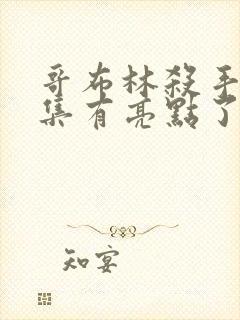 哥布林殺手
集有亮點了
知宴